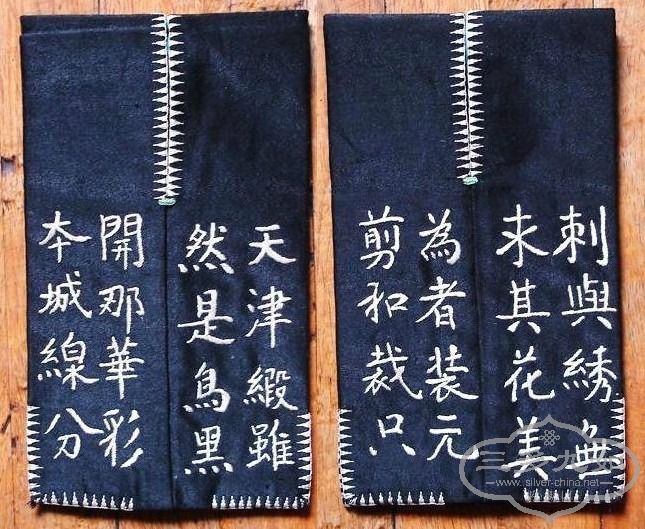 天津緞雖
然是鳥黑
開那華彩
本城線分
刺與綉無
未其花美
為者装元
剪和裁只
三多九如
www.silver-china.net